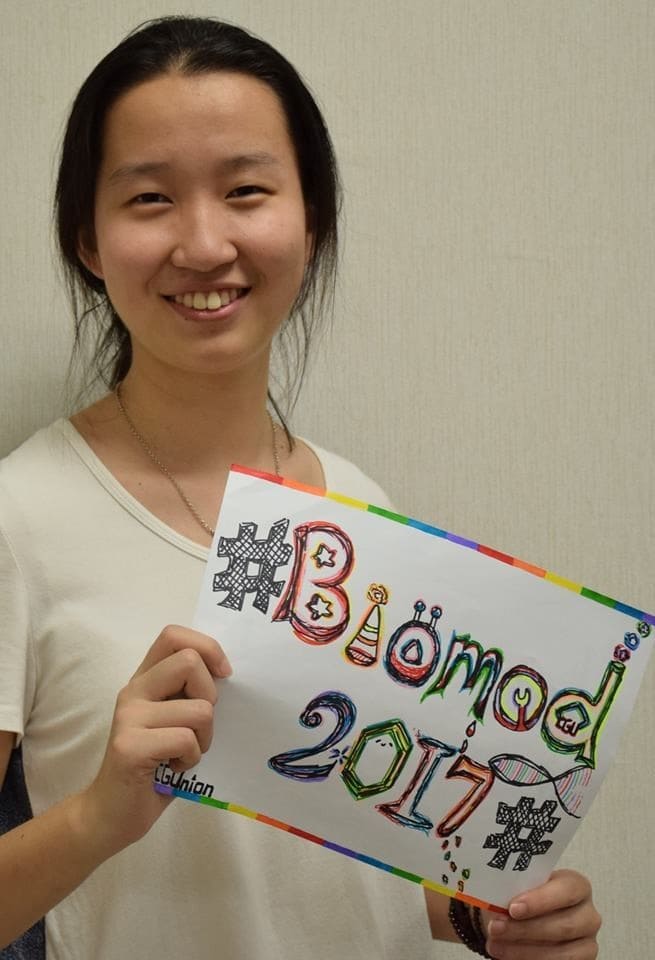 #Biomod
2017#
CGU
CGUnion